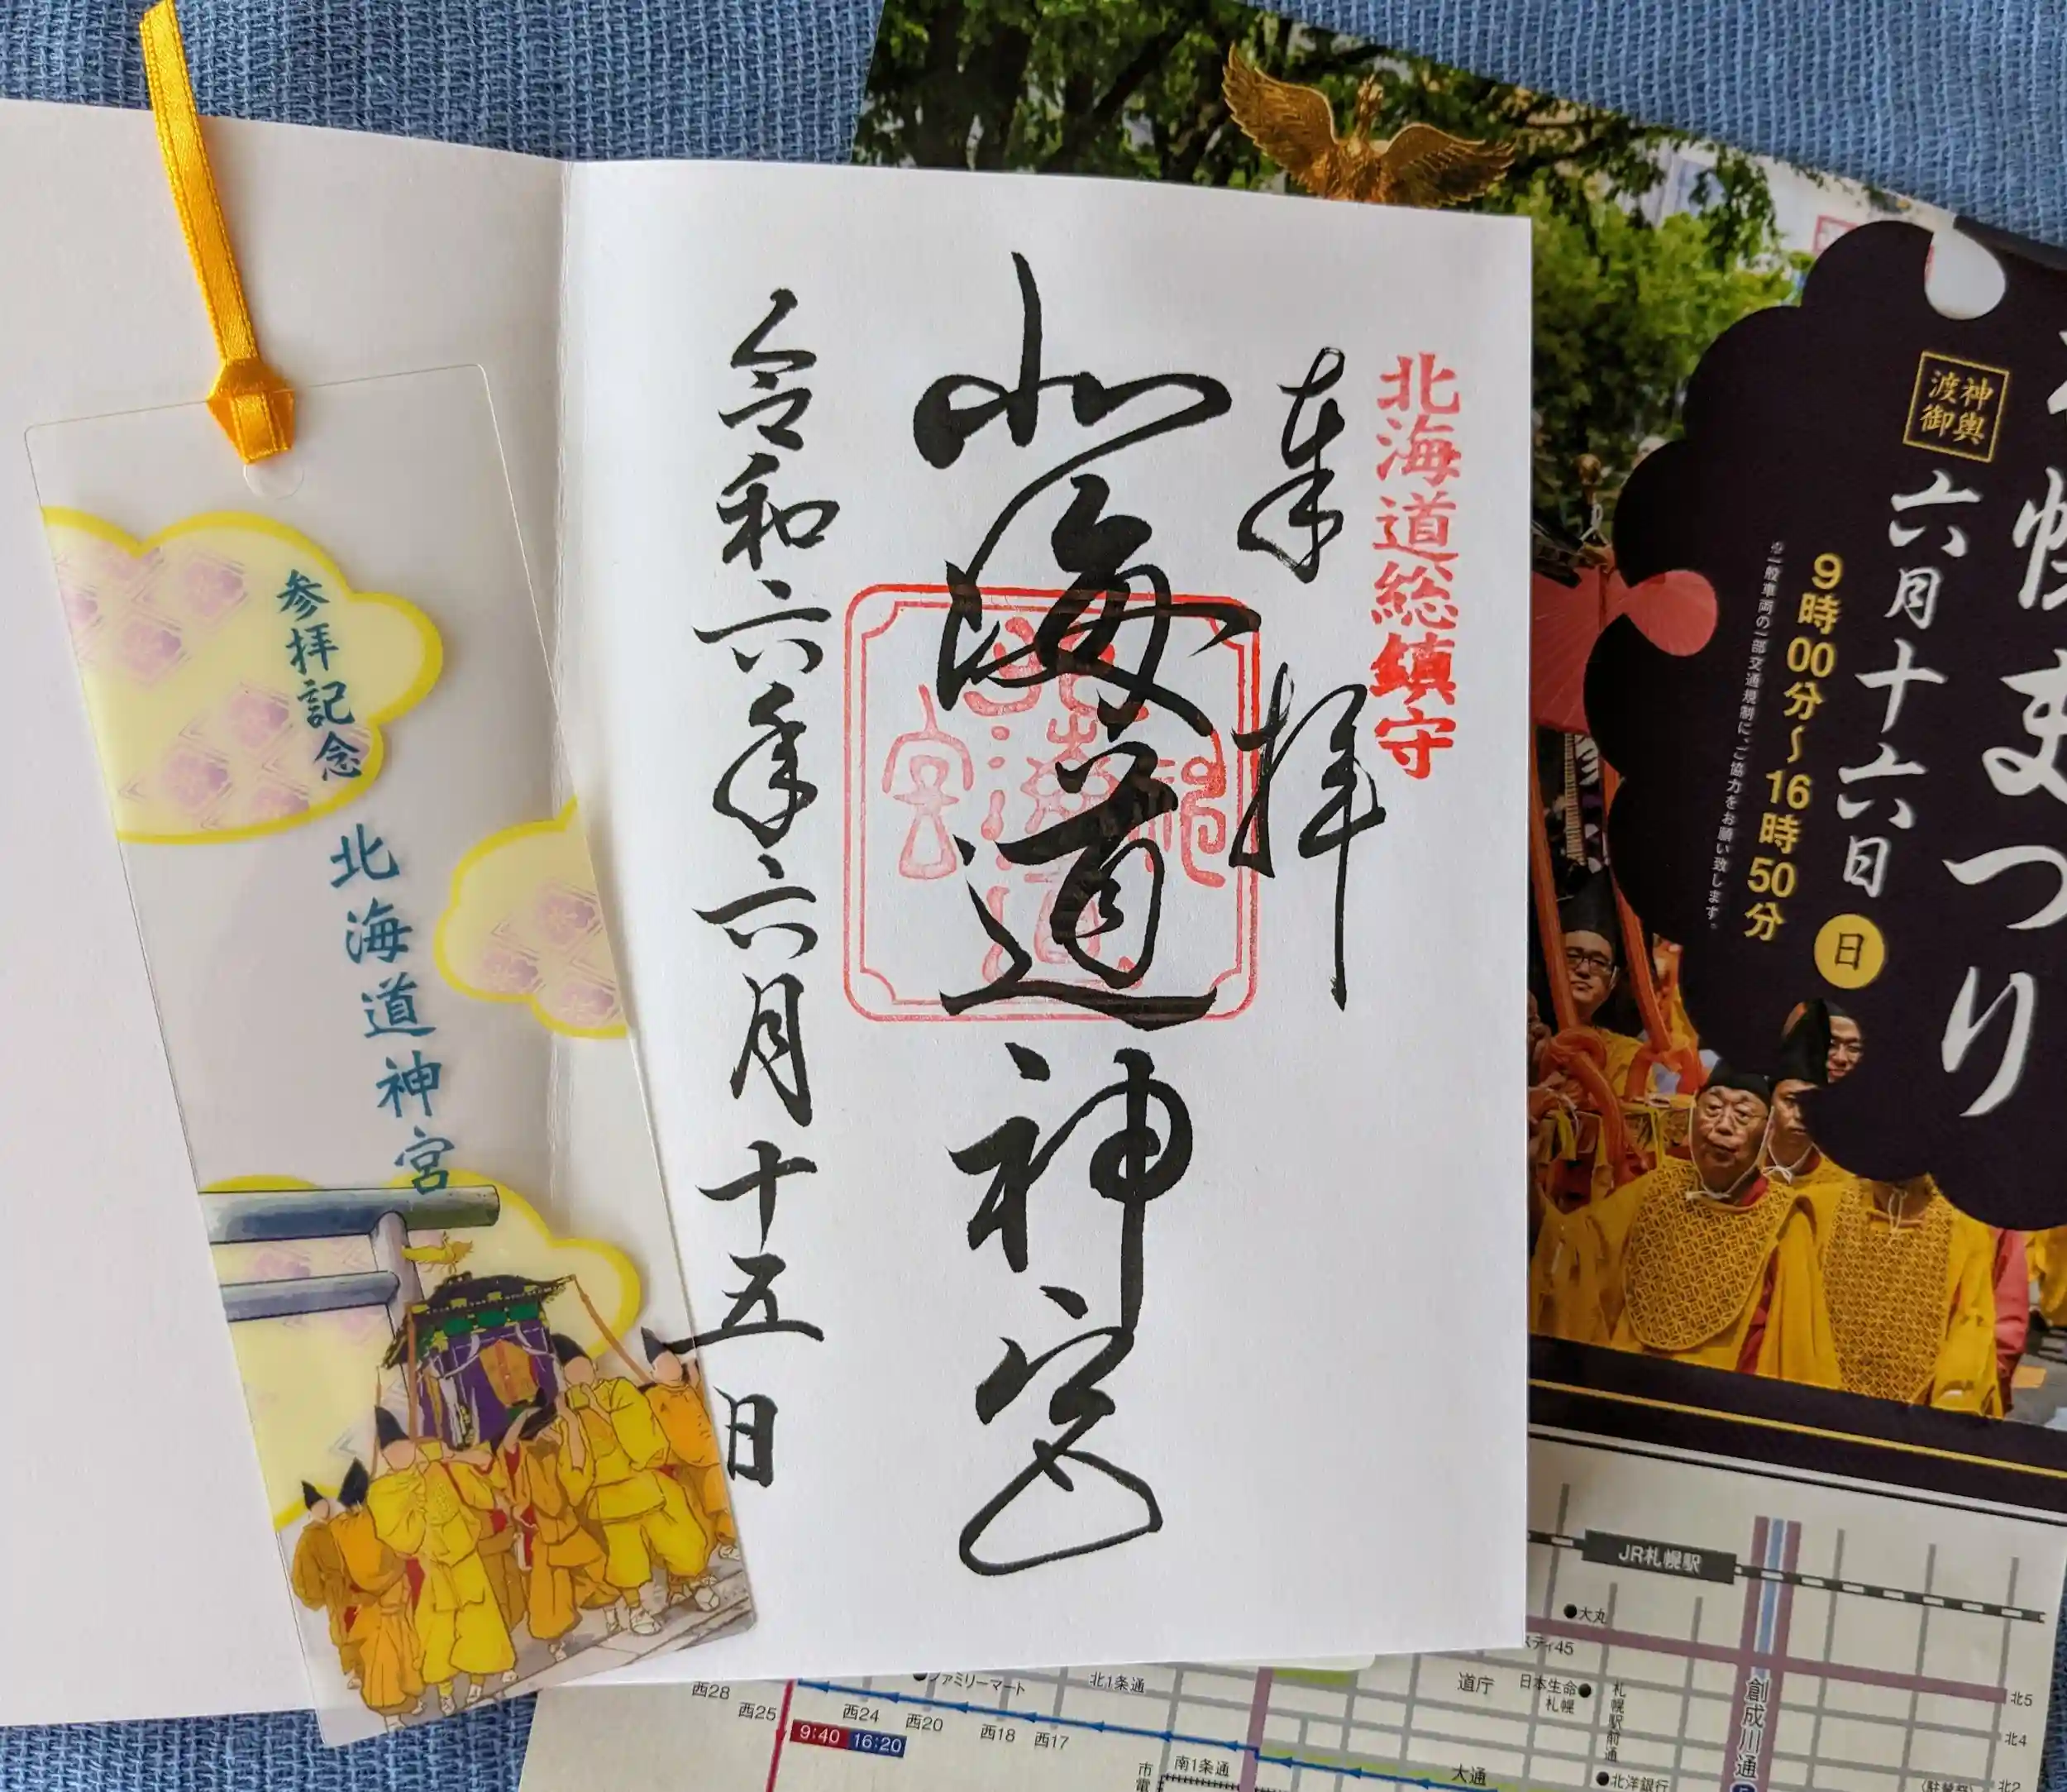 参拝記念
北海道神宮
北海道総鎮守
奉拝
北海道神宮
令和六年六月十五日
まつり
神輿
渡御
六月十六日
日
9時00分〜16時50分
※一般車両の一部交通規制に、ご協力をお願い致します。
JR札幌駅
大丸
日本生命
札幌
道庁
札幌駅前通
創成川通
北5
北4
ファミリーマート
北1条通
西28
西25
西24
西20
西18
西17
9:40
16:20
南1条通
大通
北洋銀行
市電